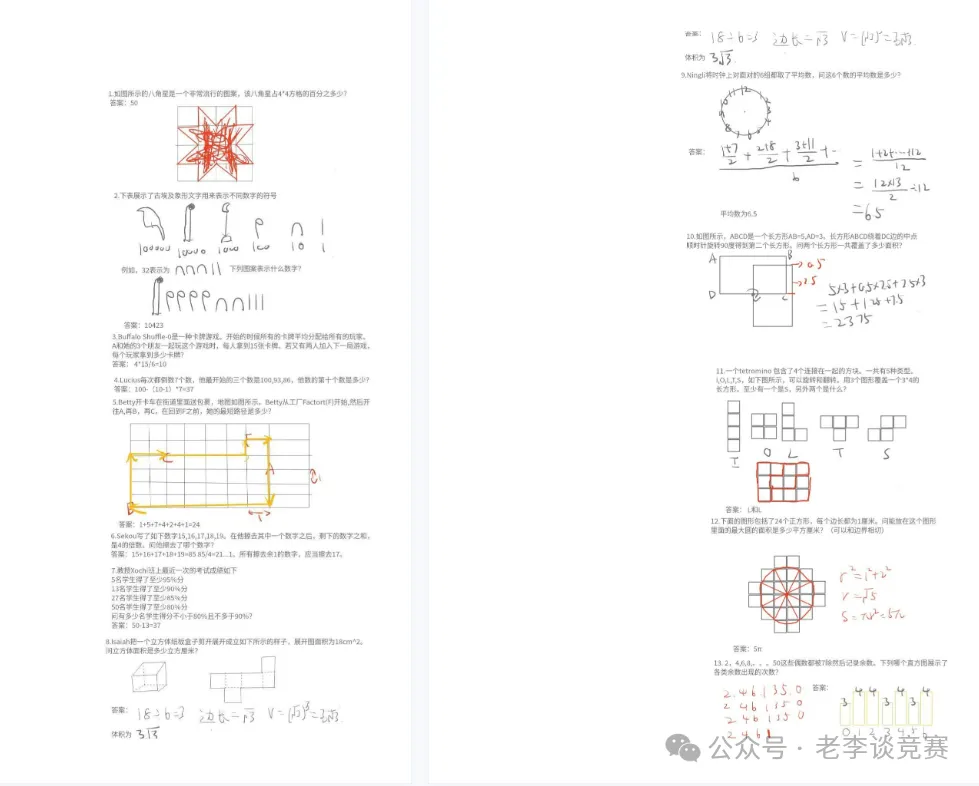 1.如图所示的八角星是一个非常流行的图案，该八角星占4*4方格的百分之多少？
答案：50
2.下表展示了古埃及象形文字用来表示不同数字的符号
100000 10000 1000 100 10 1
例如，32表示为 下列图案表示什么数字？
答案：10423
3.Buffalo Shuffle-o是一种卡牌游戏。开始的时候所有的卡牌平均分配给所有的玩家。
A和她的3个朋友一起玩这个游戏时，每人拿到15张卡牌。若又有两人加入下一局游戏，
每个玩家拿到多少卡牌？
答案： 4*15/6=10
4.Lucius每次都倒数7个数，他最开始的三个数是100,93,86，他数的第十个数是多少？
答案：100-（10-1）*7=37
5.Betty开卡车在街道里面送包裹，地图如图所示。Betty从工厂Factort(F)开始,然后开
往A,再B，再C，在回到F之前，她的最短路径是多少？
F
C
A
B
答案：1+5+7+4+2+4+1=24
6.Sekou写了如下数字15,16,17,18,19。在他擦去其中一个数字之后，剩下的数字之和，
是4的倍数。问他擦去了哪个数字？
答案：15+16+17+18+19=85.85/4=21...1。所有擦去余1的数字，应当擦去17。
7.教授Xochi班上最近一次的考试成绩如下
5名学生得了至少95%分
13名学生得了至少90%分
27名学生得了至少85%分
50名学生得了至少80%分
问有多少名学生得分不小于80%且不多于90%？
答案：50-13=37
8.Isaiah把一个立方体纸板盒子剪开展开成立如下所示的样子，展开图面积为18cm^2。
问立方体面积是多少立方厘米？
答案： 18÷6=3 边长=√3 V=(√3)³=3√3
体积为 3√3
答案： 18÷6=3 边长=√3 V=(√3)³=3√3
体积为 3√3.
9.Ningli将时钟上对面对的6组都取了平均数，问这6个数的平均数是多少？
11 12 1 2 3 4 5 6 7 8 9
答案： 1+7/2 + 2+8/2 + 3+11/2 + ··
6
= 1+2+···+12/12
= 12×13/2 ÷12
=6.5
平均数为6.5
10.如图所示，ABCD是一个长方形AB=5,AD=3。长方形ABCD绕着DC边的中点
顺时针旋转90度得到第二个长方形。问两个长方形一共覆盖了多少面积？
A B
0.5
2.5
D C
5×3+0.5×2.5+2.5×3
=15+1.25+7.5
=23.75
11.一个tetromino 包含了4个连接在一起的方块。一共有5种类型。
I,O,L,T,S。如下图所示，可以旋转和翻转。用3个图形覆盖一个3*4的
长方形。至少有一个是S，另外两个是什么？
I O L T S
答案： L和L
12.下面的图形包括了24个正方形，每个边长都为1厘米。问能放在这个图形
里面的最大圆的面积是多少平方厘米？（可以和边界相切）
r²=1²+2²
r=√5
S=πr²=5π
答案：5π
13. 2，4,6,8,。。。50这些偶数都被7除然后记录余数。下列哪个直方图展示了
各类余数出现的次数？
2.4 6 1 3 5.0
2 4 6 1 3 5 0
2 4 6 1 3 5 0
2 4 6 1
答案：
3 4 4 3 4 3 4
0 1 2 3 4 5 6
公众号 · 老李谈竞赛